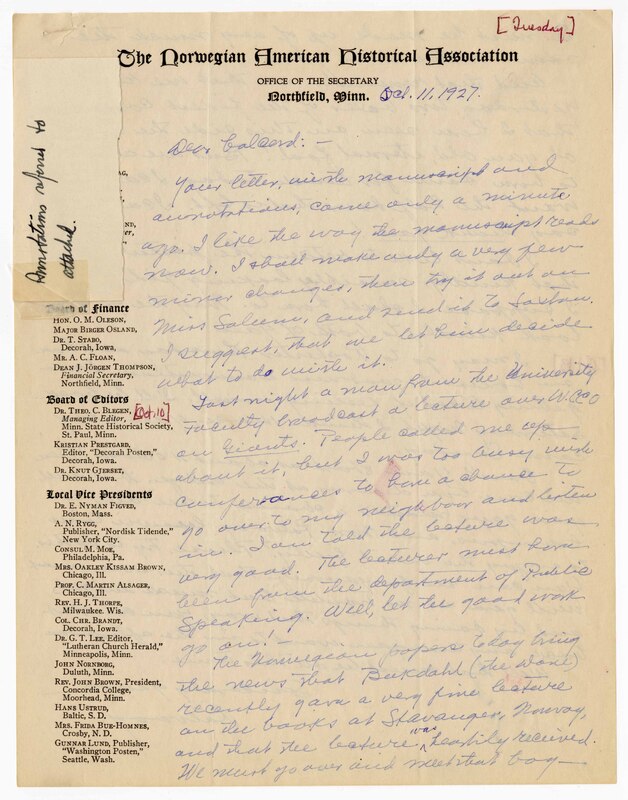 [Tuesday]
The Norwegian American Historical Association
OFFICE OF THE SECRETARY
Northfield, Minn. Oct. 11, 1927.
Annotations referred to
attached.
Dear Colcord:—
Your letter, with manuscript and
annotations, came only a minute
ago. I like the way the manuscript reads
now. I shall make only a very few
minor changes, then try it out on
Miss Saleem, and send it to Saxton.
I suggest, that we let him decide
what to do with it.
Last night a man from the University
Faculty broadcast a lecture over W.CCO
on Giants. People called me up
about it, but I was too busy with
conferences to have a chance to
go over to my neighbor and listen
in. I am told the lecture was
very good. The lecturer must have
been from the department of Public
Speaking. Well, let the good work
go on!—
The Norwegian papers today bring
the news that Bukdahl (the Dane)
recently gave a very fine lecture
on the books at Stavanger, Norway,
and that the lecture was heartily received.
We must go over and meet that boy—
Board of Finance
HON. O. M. OLESON,
MAJOR BIRGER OSLAND,
DR. T. STABO,
Decorah, Iowa,
MR. A. C. FLOAN,
DEAN J. JÖRGEN THOMPSON,
Financial Secretary,
Northfield, Minn.
Board of Editors
DR. THEO. C. BLEGEN, [Oct. 10]
Managing Editor,
Minn. State Historical Society,
St. Paul, Minn.
KRISTIAN PRESTGARD,
Editor, "Decorah Posten,"
Decorah, Iowa.
DR. KNUT GJERSET,
Decorah, Iowa.
Local Vice Presidents
DR. E. NYMAN FIGVED,
Boston, Mass.
A. N. RYGG,
Publisher, "Nordisk Tidende,"
New York City.
CONSUL M. MOE,
Philadelphia, Pa.
MRS. OAKLEY KISSAM BROWN,
Chicago, Ill.
PROF. C. MARTIN ALSAGER,
Chicago, Ill.
REV. H. J. THORPE,
Milwaukee. Wis.
COL. CHR. BRANDT,
Decorah, Iowa.
DR. G. T. LEE, Editor,
"Lutheran Church Herald,"
Minneapolis, Minn.
JOHN NORNBORG,
Duluth, Minn.
REV. JOHN BROWN, President,
Concordia College,
Moorhead, Minn.
HANS USTRUD,
Baltic, S. D.
MRS. FRIDA BUE-HOMNES,
Crosby, N. D.
GUNNAR LUND, Publisher,
"Washington Posten,"
Seattle, Wash.